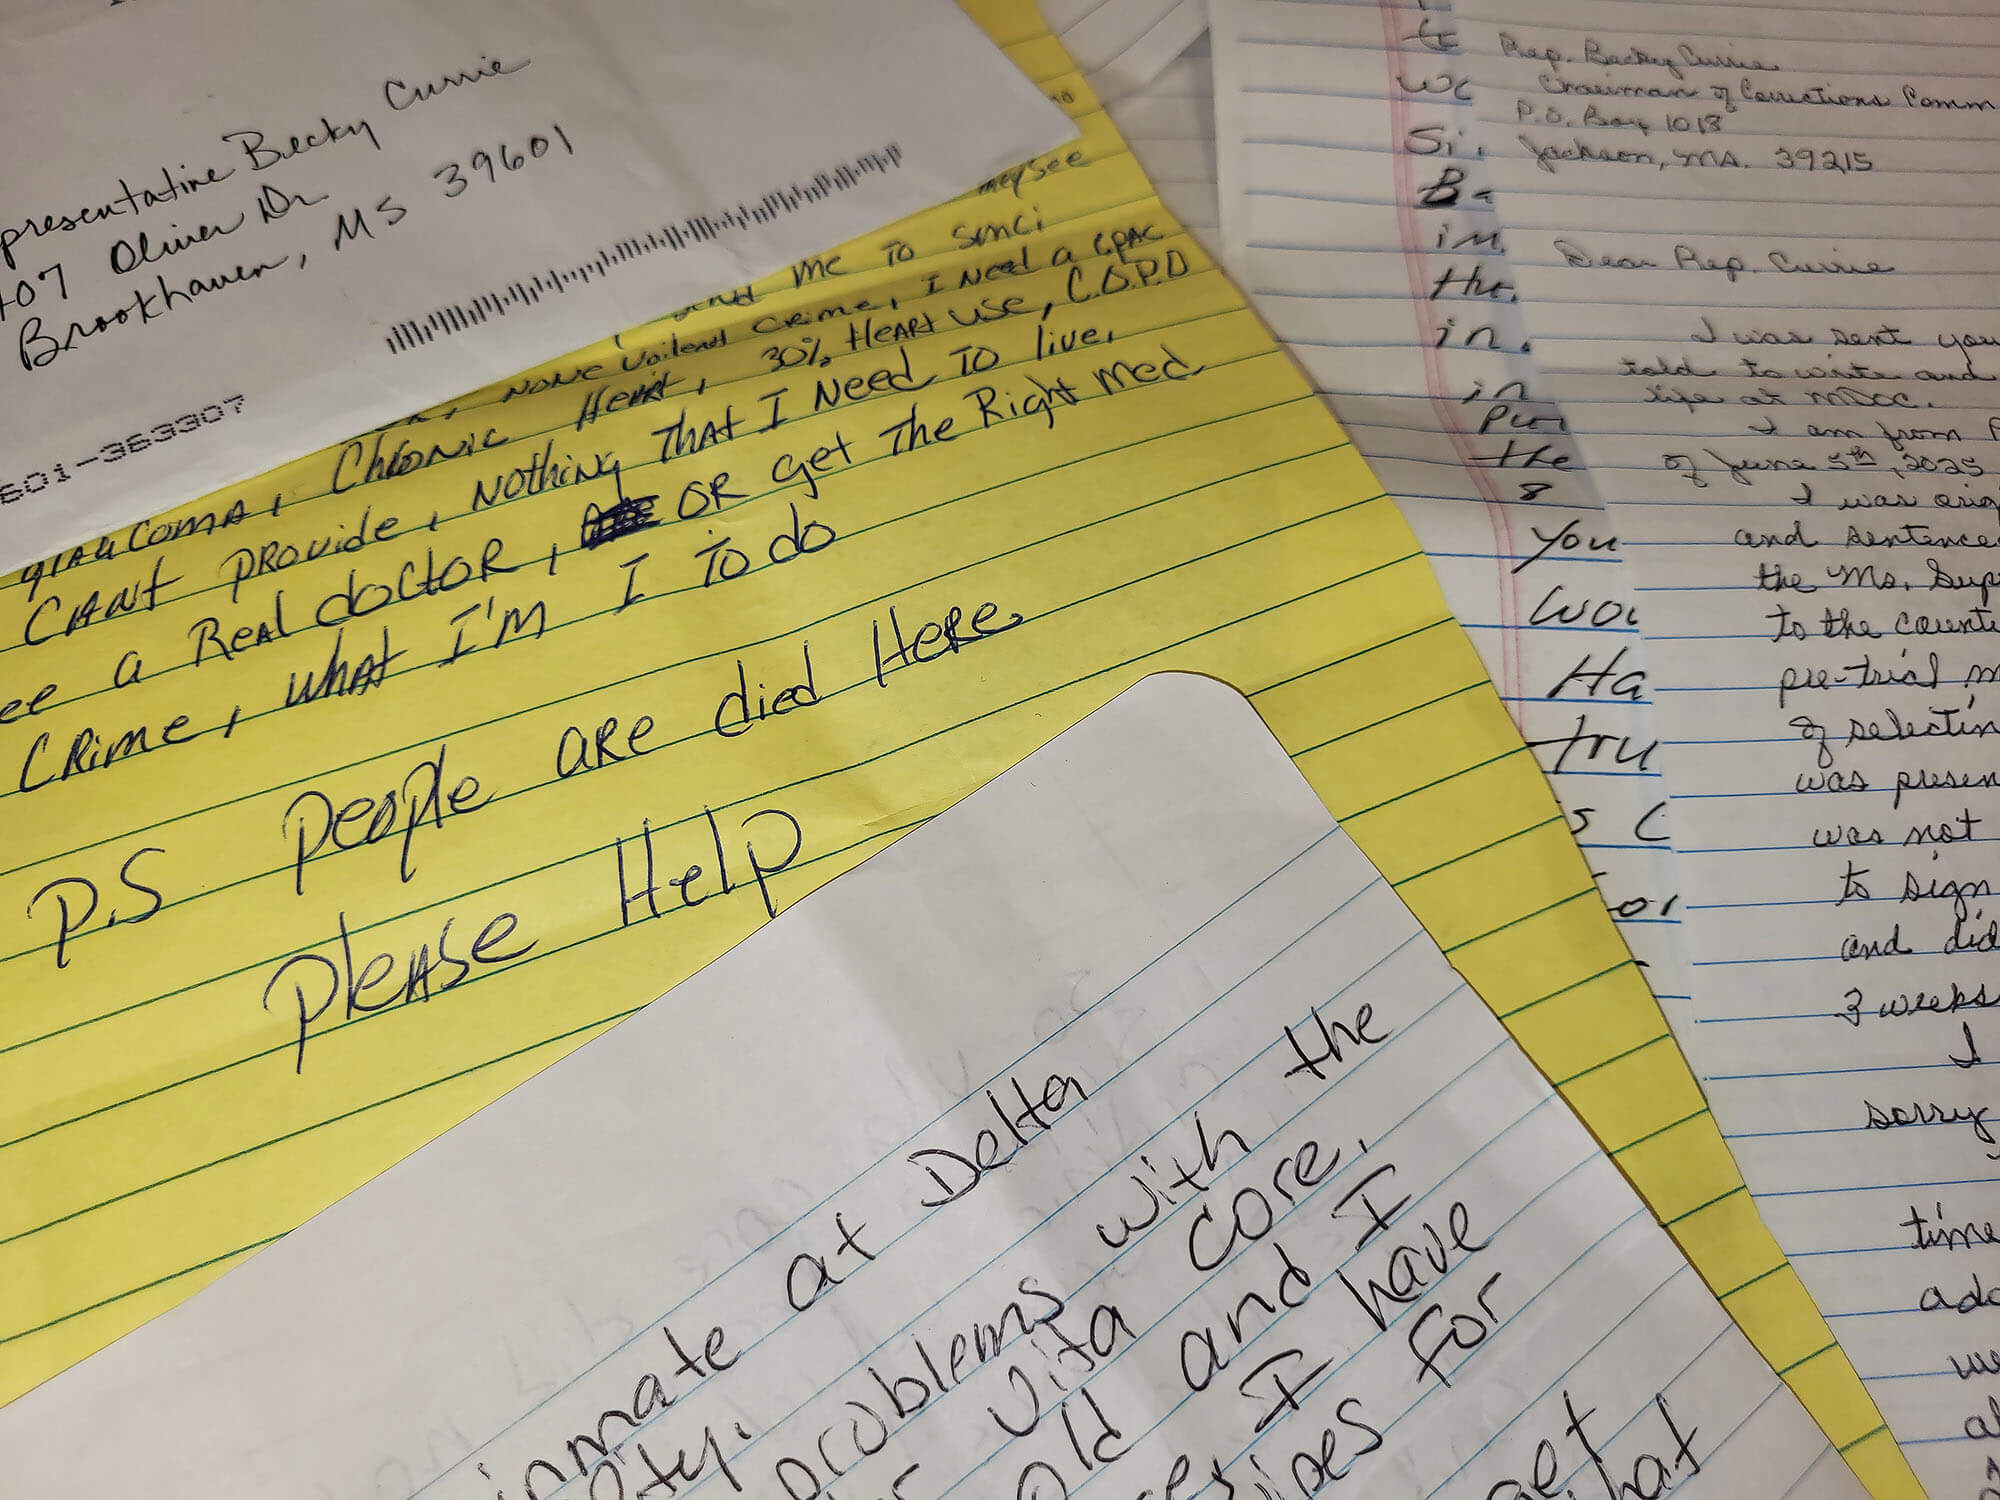 presentative Becky Currie
407 Oliver Dr
Brookhaven, MS 39601
601-363307
me To SMCI
None Voilent Crime, I Need a CPAC
glaucoma, Chronic Heart, 30% Heart use, C.O.P.D
Cant provide, Nothing That I Need To live.
ee a Real doctor, OR get The Right med
Crime, what I'm I To do
P.S People are died Here.
Please Help
inmate at Delta
problems with the
Vita Core.
old and I
I have
for
Rep. Becky Currie
Chairman of Corrections Comm
P.O. Box 1018
Jackson, MS. 39215
Dear Rep. Currie
I was sent you
told to write and
life at MDOC.
I am from P
of June 5th, 2025
I was orig
and sentence
the Ms. Sup
to the count
pre-trial m
of selectin
was presen
was not
to sign
and did
3 weeks
I
sorry
time
add
we
al
wc
Si.
Ba
im
in.
in
the
8
You
Wou
Ha
tru
s C